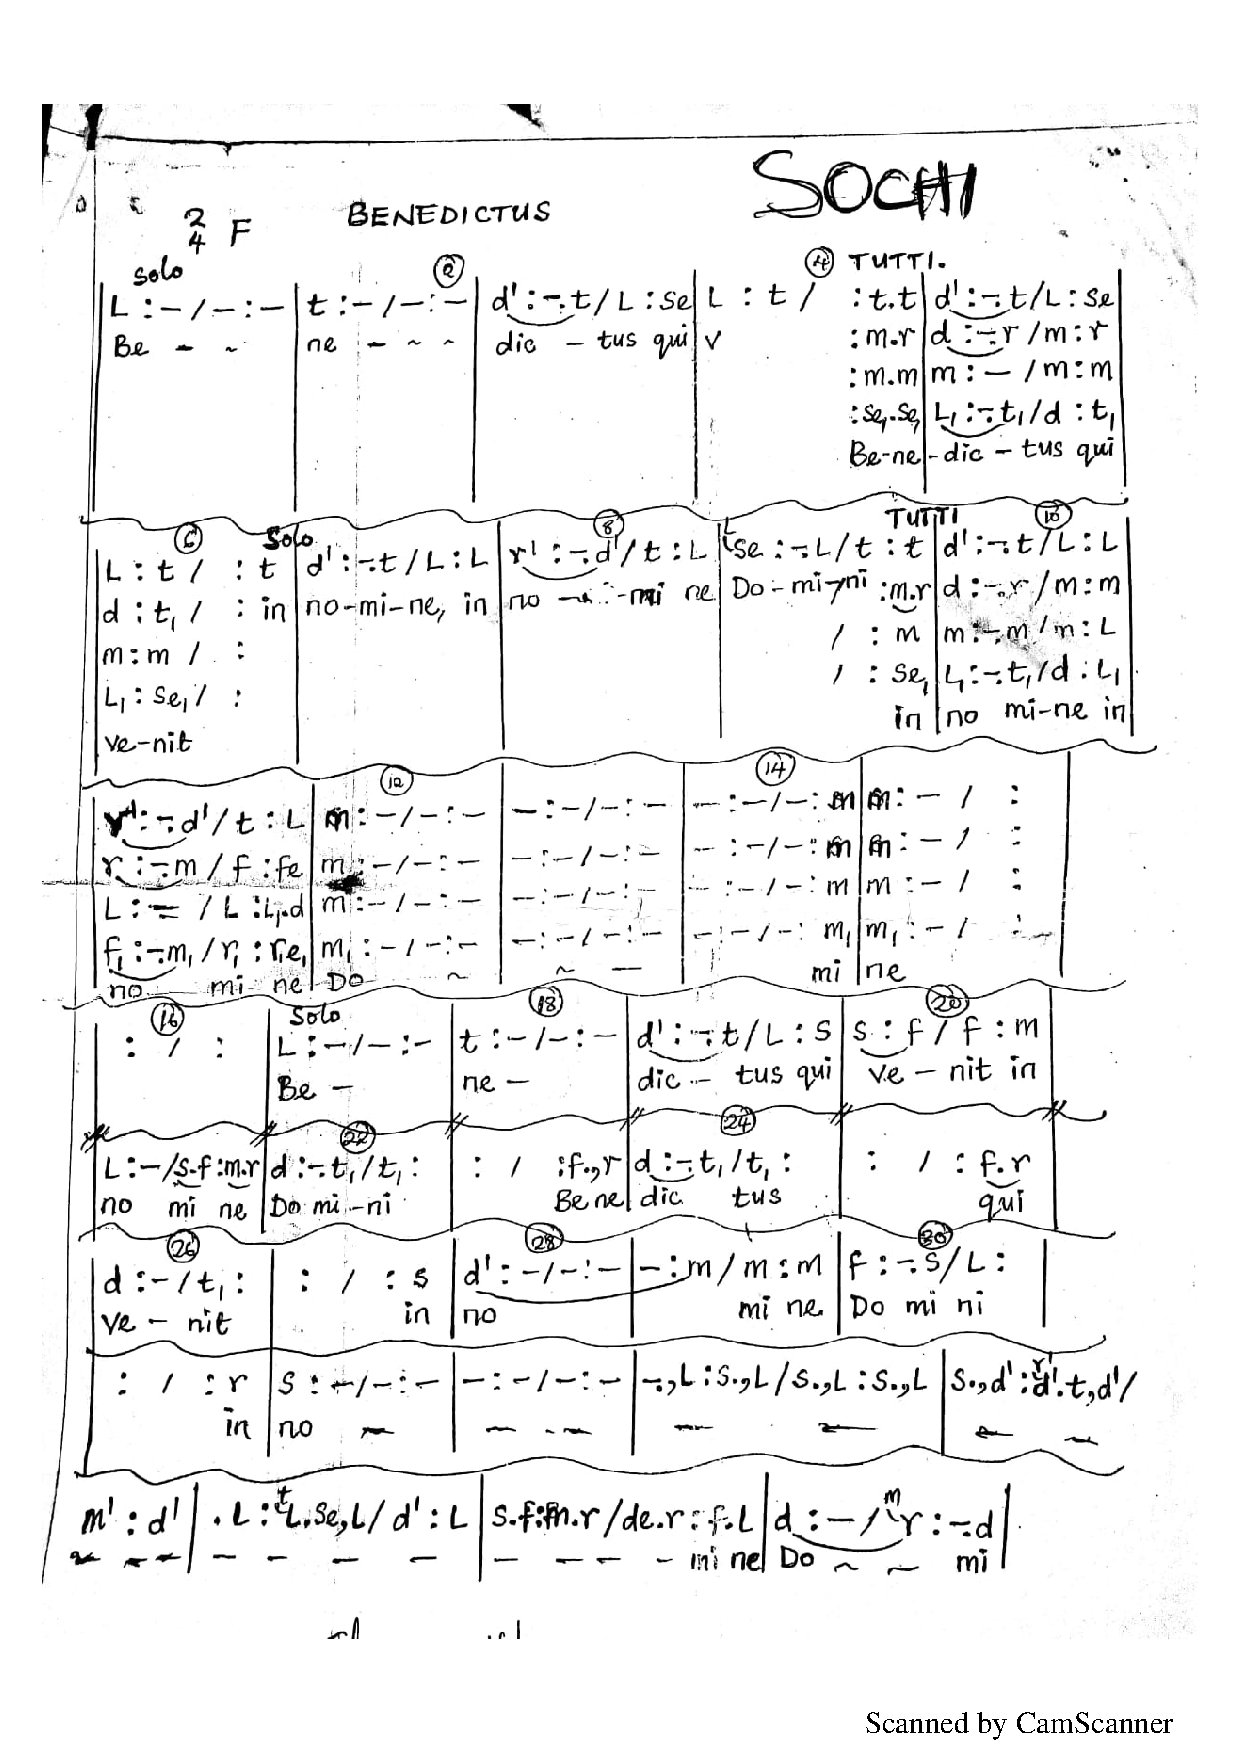 SOCHI
2/4 F BENEDICTUS
Solo ② ④ TUTTI.
| L :-/-:- | t :-/-:- | d' :-.t/L :se | L : t / :t.t | d' :-.t/L :se |
Be - ~ ne - ~ ~ dic - tus qui v :m.r | d :-.r/m :r |
:m.m | m :-/m :m |
:se₁.se₁ | L₁ :-.t₁/d :t₁ |
Be-ne -dic - tus qui
⑥ Solo ⑧ TUTTI ⑩
| L : t / : t | d' :-.t/L :L | r' :-.d'/t :L | t se :-.L/t : t | d' :-.t/L :L |
d : t₁ / : in no-mi-ne, in no - mi ne Do-mi-ni :m.r | d :-.r/m :m |
m : m / : / : m | m :-.m/m :L |
L₁ : se₁ / : / : se₁ | L₁ :-.t₁/d :L₁ |
ve-nit in no mi-ne in
⑫ ⑭
| r' :-.d'/t :L | m :-/-:- | -:-/-:- | -:-/-:m | m :-/ : |
| r :-.m/f :fe | m :-/-:- | -:-/-:- | -:-/-:m | m :-/ : |
| L :-/L :L₁.d | m :-/-:- | -:-/-:- | -:-/-:m | m :-/ : |
| f₁ :-.m₁/r₁ :r₁e₁ | m₁ :-/-:- | -:-/-:- | -:-/-:m₁ | m₁ :-/ : |
no mi ne Do ~ ~ - mi ne
⑯ Solo ⑱ ⑳
| : / : | L :-/-:- | t :-/-:- | d' :-.t/L :s | s :f/f :m |
Be - ne - dic - tus qui ve - nit in
㉒ ㉔
| L :-/s.f :m.r | d :-.t₁/t₁ : | : / :f.,r | d :-.t₁/t₁ : | : / :f.r |
no mi ne Do mi-ni Be ne dic tus qui
㉖ ㉘ ㉚
| d :-/t₁ : | : / :s | d' :-/-:- | -:m/m :m | f :-.s/L : |
ve - nit in no mi ne Do mi ni
| : / :r | s :-/-:- | -:-/-:- | -.,L :s.,L/s.,L :s.,L | s.,d' :r' d'.t,d'/
in no ~ - - - - - - ~
m' : d' | .L :t L.se,L/d' :L | s.f :m.r/de.r :f.L | d :-/m r :-.d |
~ - - - - - - - - - - mi ne Do ~ ~ mi
Scanned by CamScanner